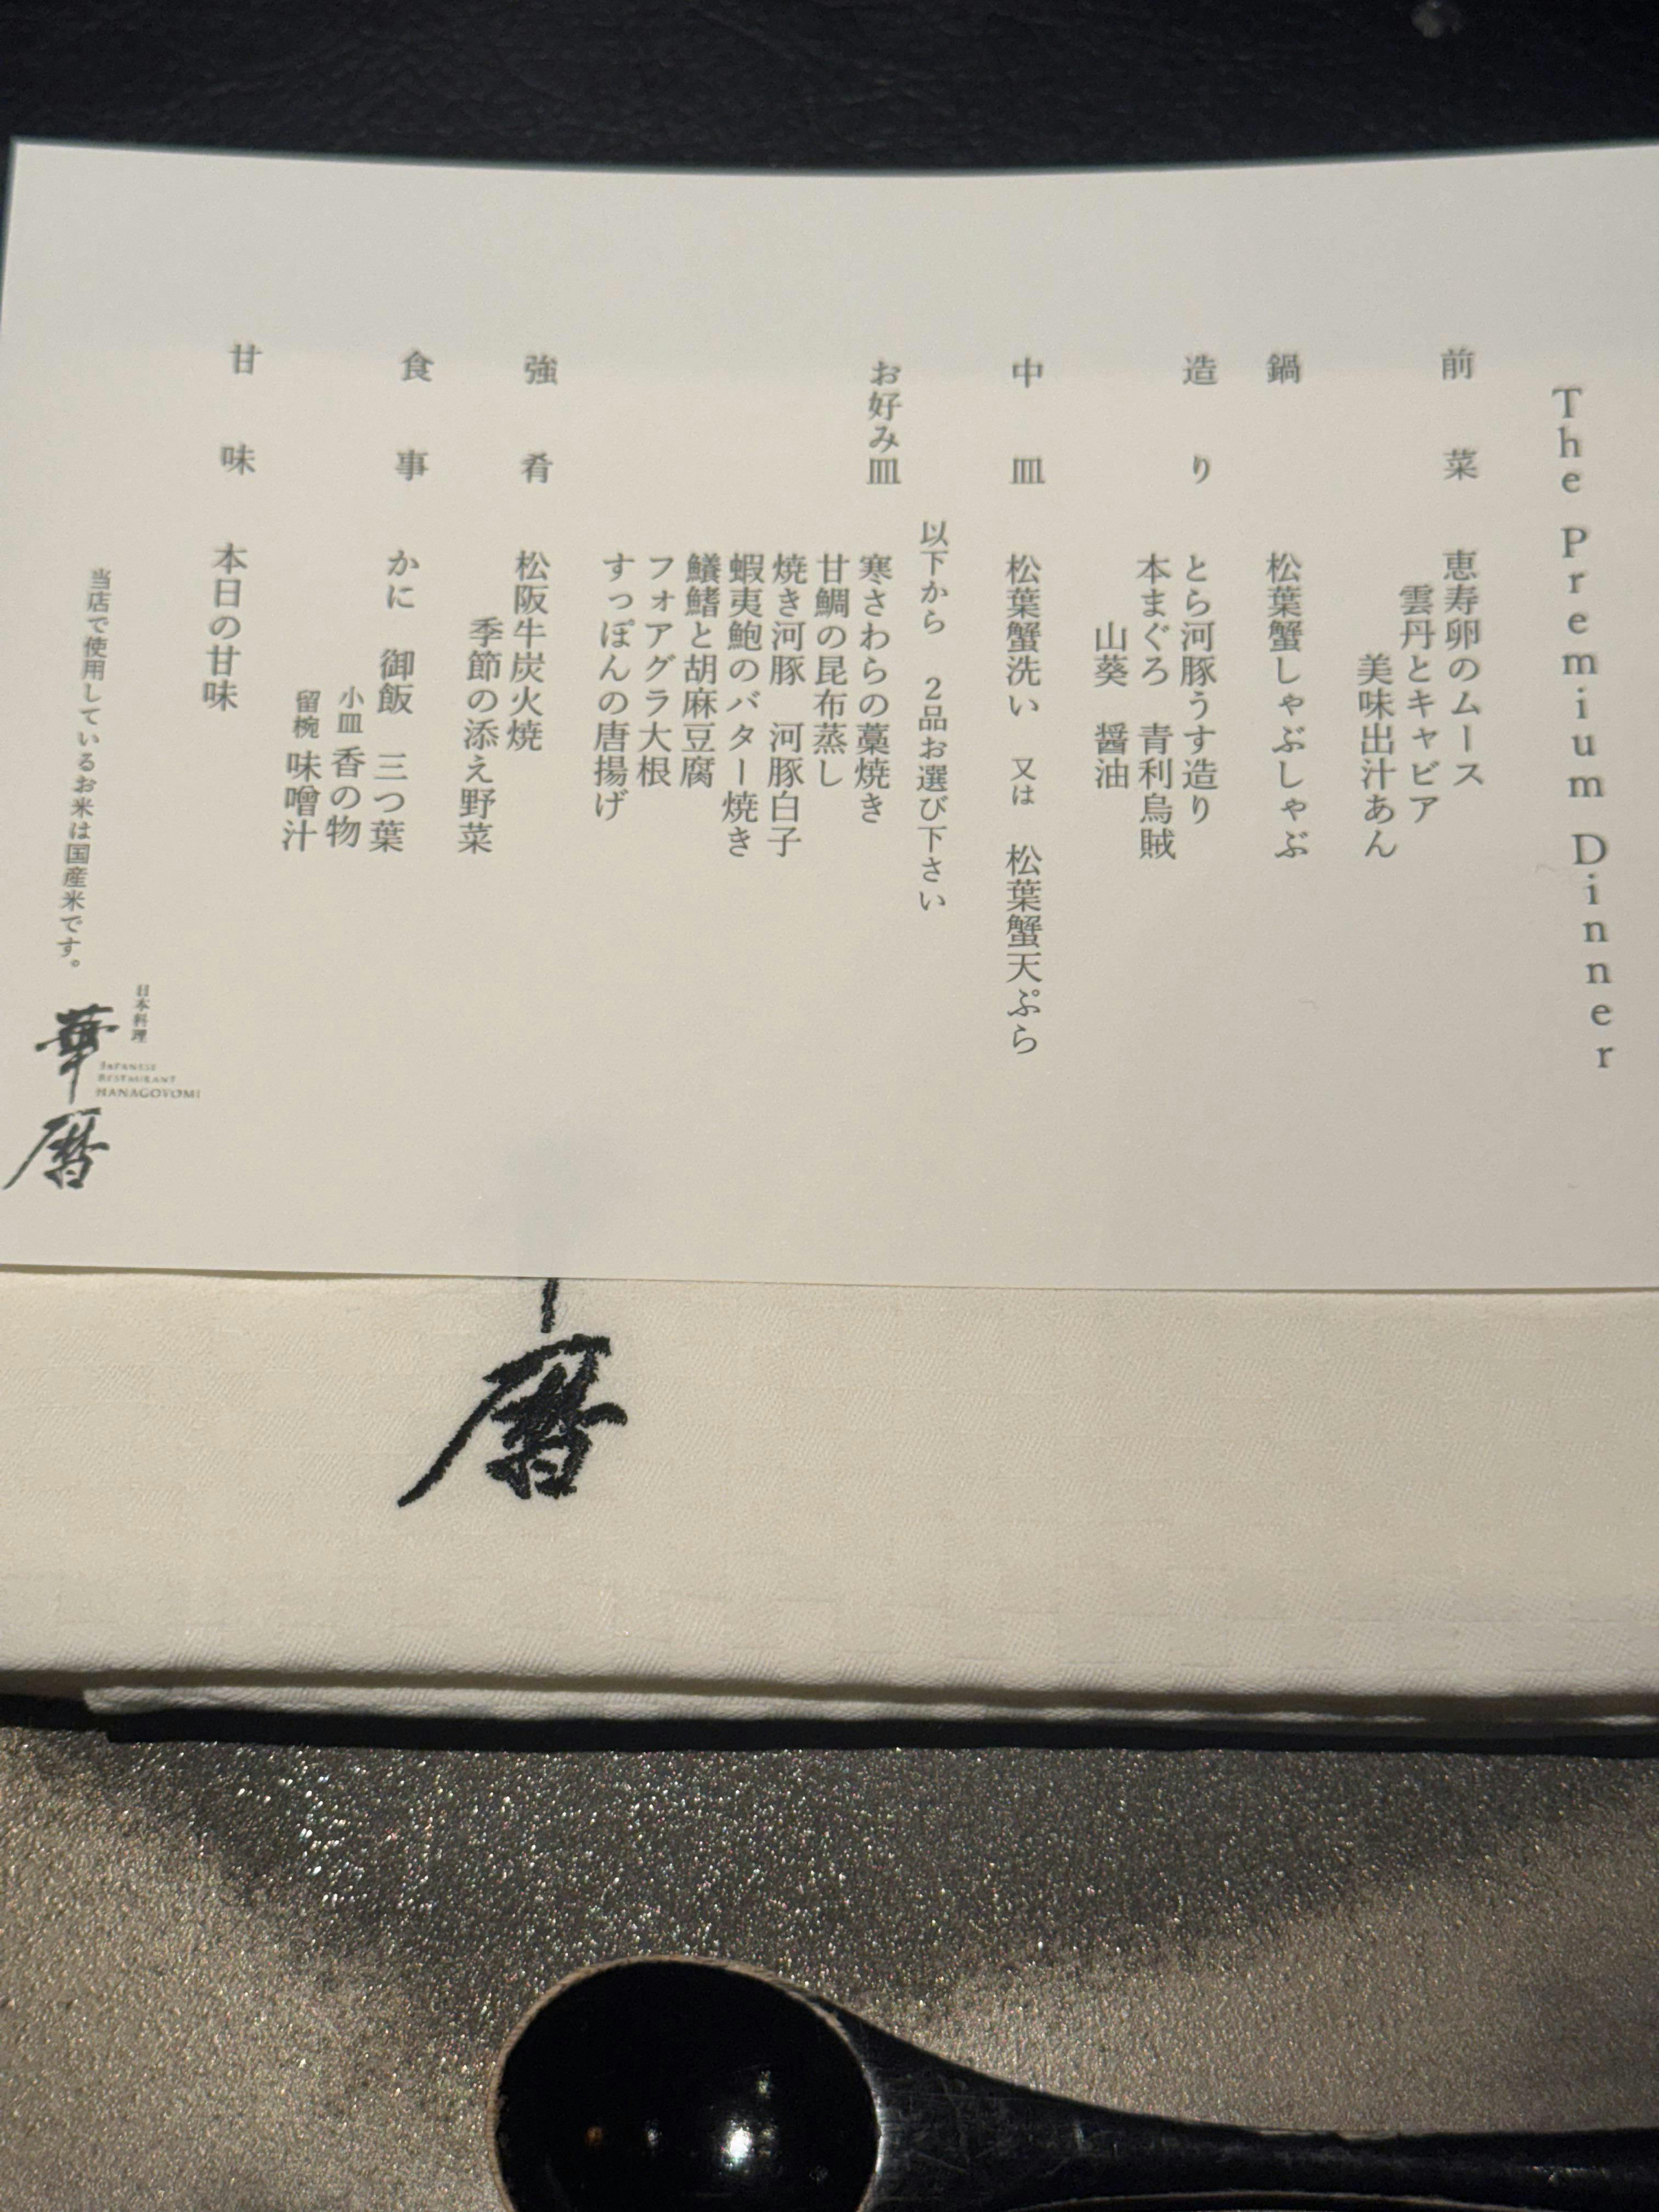 The Premium Dinner
前菜 恵寿卵のムース
雲丹とキャビア
美味出汁あん
鍋 松葉蟹しゃぶしゃぶ
造り とら河豚うす造り
本まぐろ 青利烏賊
山葵 醤油
中皿 松葉蟹洗い 又は 松葉蟹天ぷら
お好み皿 以下から 2品お選び下さい
寒さわらの藁焼き
甘鯛の昆布蒸し
焼き河豚 河豚白子
蝦夷鮑のバター焼き
鱶鰭と胡麻豆腐
フォアグラ大根
すっぽんの唐揚げ
強肴 松阪牛炭火焼
季節の添え野菜
食事 かに 御飯 三つ葉
小皿 香の物
留椀 味噌汁
甘味 本日の甘味
当店で使用しているお米は国産米です。
日本料理
華暦
JAPANESE
RESTAURANT
HANAGOYOMI
暦